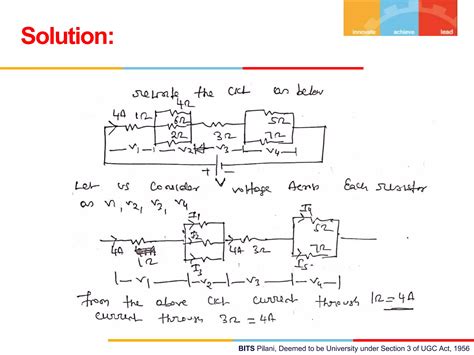 innovate achieve lead
Solution:
rewrite the CKT as below
4Ω
4A 1Ω 6Ω 5Ω
2Ω 3Ω 7Ω
V1 V2 V3 V4
+ -
Let us Consider voltage Across Each resistor
as V1, V2, V3, V4
I1 I4
I2 5Ω
4A 1Ω 4A 3Ω 7Ω
I3 I5
V1 V2 V3 V4
from the above CKT current through 1Ω = 4A
current through 3Ω = 4A
BITS Pilani, Deemed to be University under Section 3 of UGC Act, 1956